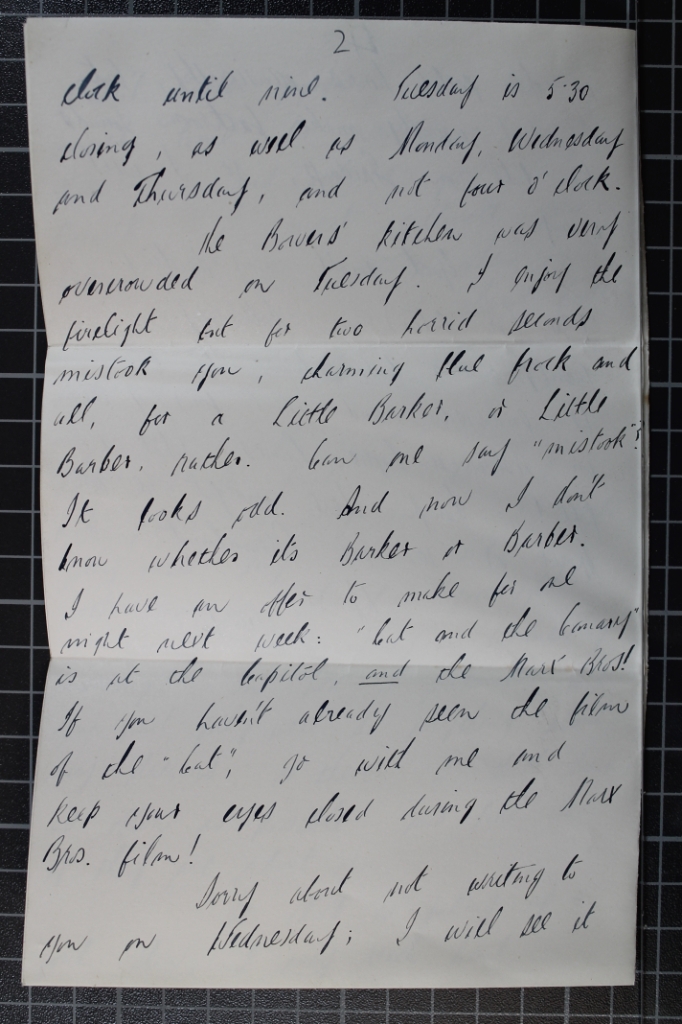 2
clock until nine. Tuesday is 5.30
closing, as well as Monday, Wednesday
and Thursday, and not four o'clock.
The Bowers' kitchen was very
overcrowded on Tuesday. I enjoy the
firelight but for two horrid seconds
mistook you, charming blue frock and
all, for a Little Barker, or Little
Barber, rather. Can one say "mistook"?
It looks odd. And now I don't
know whether it's Barker or Barber.
I have an offer to make for one
night next week: "Cat and the Canary"
is at the Capitol, and the Marx Bros!
If you haven't already seen the film
of the "Cat", go with me and
keep your eyes closed during the Marx
Bros. film!
Sorry about not writing to
you on Wednesday; I will see it